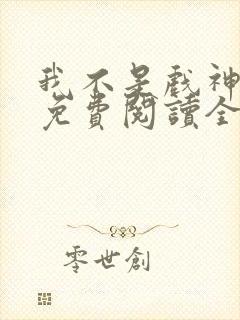 我不是戲神
免費閱讀全
零世創